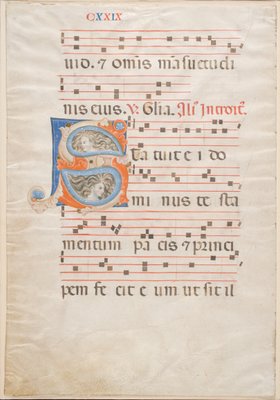 CXXIX
uid. ⁊ om̅is ma̅suetudi
nis eius. V. Gl̅ia. Ali Introit̅.
Statuit ei do
mi nus te sta
mentum pa cis ⁊ princi
pem fe cit e um ut sit il